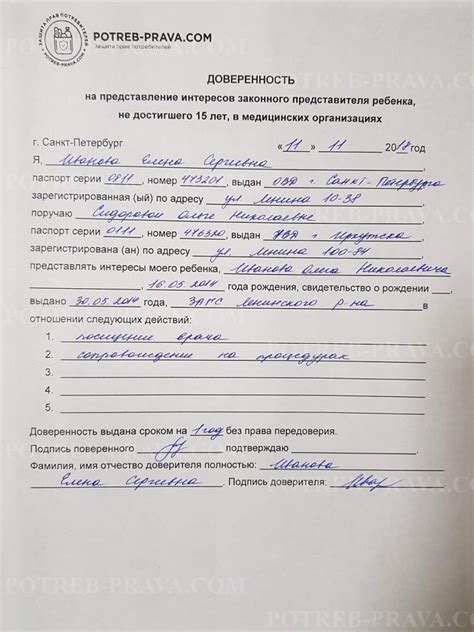 ЗАЩИТА ПРАВ ПОТРЕБИТЕЛЕЙ
POTREB-PRAVA.COM
POTREB-PRAVA.COM
Защита прав потребителей
ДОВЕРЕННОСТЬ
на представление интересов законного представителя ребенка,
не достигшего 15 лет, в медицинских организациях
г. Санкт-Петербург « 11 » 11 2018 год
Я, Иванова Елена Сергиевна,
паспорт серии 0811, номер 473201, выдан ОВД г. Санкт-Петербурга
зарегистрированная (ый) по адресу ул Ленина 10-38,
поручаю Сидоровой Ольге Николаевне
паспорт серии 0111, номер 476320, выдан УВД г. Иркутска,
зарегистрирована (ан) по адресу ул. Ленина 100-84,
представлять интересы моего ребенка, Иванова Олега Николаевича
, 16.05.2014 года рождения, свидетельство о рождении ,
выдано 30.05.2014 года, ЗАГС Ленинского р-на в
отношении следующих действий:
1. посищение врача
2. сопровождение на процедурах
3.
4.
5.
Доверенность выдана сроком на 1 год без права передоверия.
Подпись поверенного подтверждаю
Фамилия, имя отчество доверителя полностью: Иванова
Елена Сергиевна. Подпись доверителя:
POTREB-PRAVA.COM
POTREB-PRAVA.COM